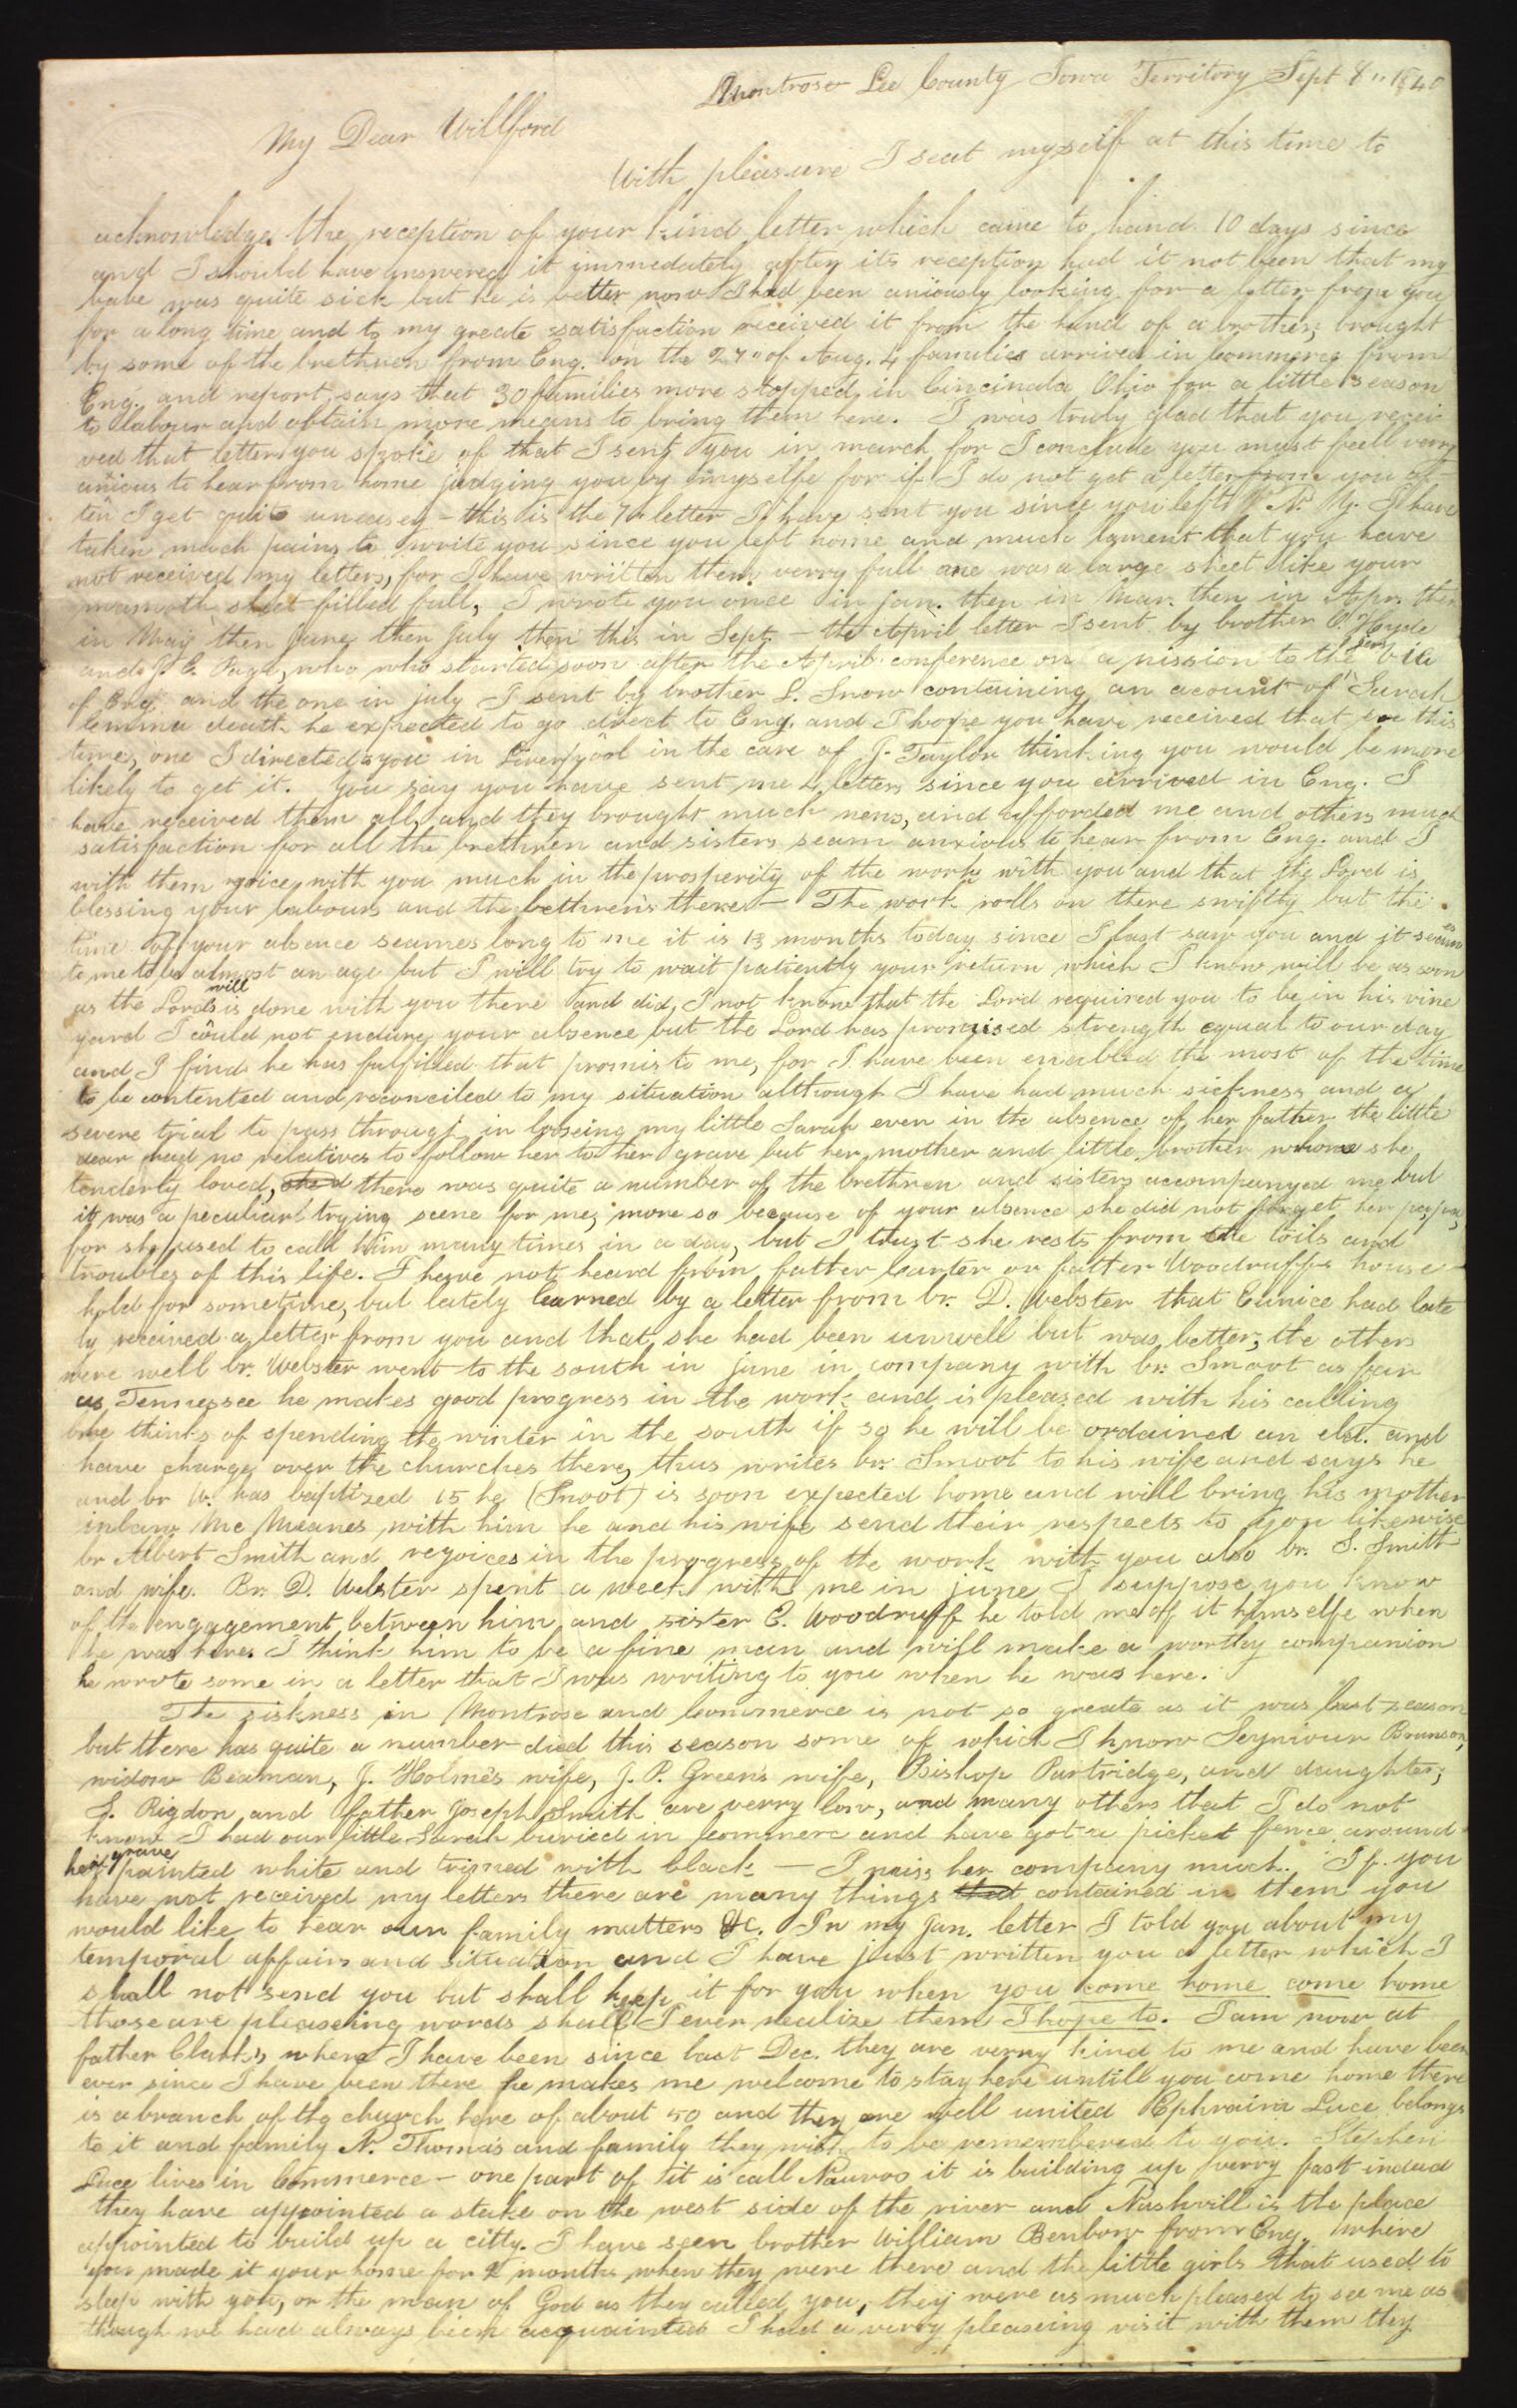 Montrose Lee County Iowa Territory Sept 8" 1840
My Dear Willford
With pleasure I seat myself at this time to
acknowledge the reception of your kind letter which came to hand 10 days since
and I should have answered it immedately after its reception had it not been that my
babe was quite sick but he is better now I had been anxiously looking for a letter from you
for a long time and to my greate satisfaction received it from the hand of a brother, brought
by some of the brethren from Eng. on the 27" of Aug. 4 families arrived in Commerce from
Eng. and report says that 30 families more stopped in Cincinata Ohio for a little season
to labour and obtain more means to bring them here. I was truly glad that you recei
ved that letter you spoke of that I sent you in march for I conclude you must feell verry
anious to hear from home judging you by myselfe for if I do not get a letter from you of
ten I get quite uneasey - this is the 7" letter I have sent you since you left N. Y. I have
taken much pains to write you since you left home and much lament that you have
not received my letters, for I have written them verry full one was a large sheet like your
mamoth sheet filled full, I wrote you once in jan. then in Mar. then in Apr. then
in May then June then July then this in Sept. - the April letter I sent by brother O. Hyde
and J. E. Page, who who started soon after the April conference on a mission to the jews via
of Eng. and the one in july I sent by brother L. Snow containing an acount of Sarah
Emma death he expected to go direct to Eng. and I hope you have received that ere this
time, one I directed to you in Liverpool in the care of J. Taylor thinking you would be more
likely to get it. You say you have sent me 4 letters since you arrived in Eng. I
have received them all, and they brought much news, and afforded me and others much
satisfaction for all the brethren and sisters seam anxious to hear from Eng. and I
with them rejoice with you much in the prosperity of the work with you and that the Lord is
blessing your labours and the bethren's there - The work rolls on there swiftly but the
time of your absence seames long to me it is 13 months today since I last saw you and it seems
to me to be almost an age but I will try to wait patiently your return which I know will be as soon
as the Lords will is done with you there and did I not know that the Lord required you to be in his vine
yard I could not endure your absence but the Lord has promised strength equal to our day
and I find he has fulfilled that promis to me, for I have been enabled the most of the time
to be contented and reconciled to my situation although I have had much sickness and a
severe trial to pass through in looseing my little Sarah even in the absence of her father the little
dear had no relatives to follow her to her grave but her mother and little brother whome she
tenderly loved, there was quite a number of the brethren and sisters accompanyed me but
it was a peculiar trying scene for me, more so because of your absence she did not forget her papa,
for she used to call him many times in a day, but I trust she rests from the toils and
troubles of this life. I have not heard from father Carter or father Woodruffs house-
hold for sometime, but lately learned by a letter from br. D. Webster that Eunice had late
ly received a letter from you and that she had been unwell but was better, the others
were well br. Webster went to the south in june in company with br. Smoot as far
as Tennessee he makes good progress in the work and is pleased with his calling
he thinks of spending the winter in the south if so he will be ordained an eld. and
have charge over the churches there, thus writes br. Smoot to his wife and says he
and br W. has baptized 15 he (Smoot) is soon expected home and will bring his mother
inlaw Mc Meanes with him he and his wife send their respects to you likewise
br Albert Smith and rejoices in the progress of the work with you also br. S. Smith
and wife. Br. D. Webster spent a week with me in june I suppose you know
of the engagement between him and sister E. Woodruff he told me of it himselfe when
he was here I think him to be a fine man and will make a worthy companion
he wrote some in a letter that I was writing to you when he was here.
The sickness in Montrose and Commerce is not so greate as it was last season
but there has quite a number died this season some of which I know Seymour Brunson,
widow Beaman, J. Holmes wife, J. P. Green's wife, Bishop Partridge, and daughter,
S. Rigdon and father Joseph Smith are verry low, and many others that I do not
know I had our little Sarah buried in Commerc and have got a picket fence around
her grave painted white and trimed with black - I miss her company much. If you
have not received my letters there are many things that contained in them you
would like to hear our family matters &c. In my Jan. letter I told you about my
temporal affairs and situation and I have just written you a letter which I
shall not send you but shall keep it for you when you come home come home
those are pleaseing words shall I ever realize them I hope to. I am now at
father Clark's where I have been since last Dec. they are verry kind to me and have been
ever since I have been there he makes me welcome to stay here untill you come home there
is a branch of the church here of about 50 and they are well united Ephraim Luce belongs
to it and family N. Thomas and family they wish to be remembered to you. Stephen
Luce lives in Commerce - one part of it is call Nauvoo it is building up verry fast indeed
they have appointed a stake on the west side of the river and Nashvill is the place
appointed to build up a citty. I have seen brother William Benbow from Eng. where
you made it your home for 2 months when they were there and the little girls that used to
sleep with you, or the man of God as they called you, they were as much pleased to see me as
though we had always been acquainted I had a verry pleaseing visit with them they